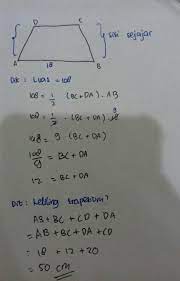 D C
} sisi sejajar
A 18 B
Dit : Luas = 108
108 = 1/2 · (BC + DA) · AB
108 = 1/2 · (BC + DA) · 18 9
108 = 9 · (BC + DA)
108/9 = BC + DA
12 = BC + DA
Dit : keliling trapesium?
AB + BC + CD + DA
= AB + BC + DA + CD
= 18 + 12 + 20
= 50 cm